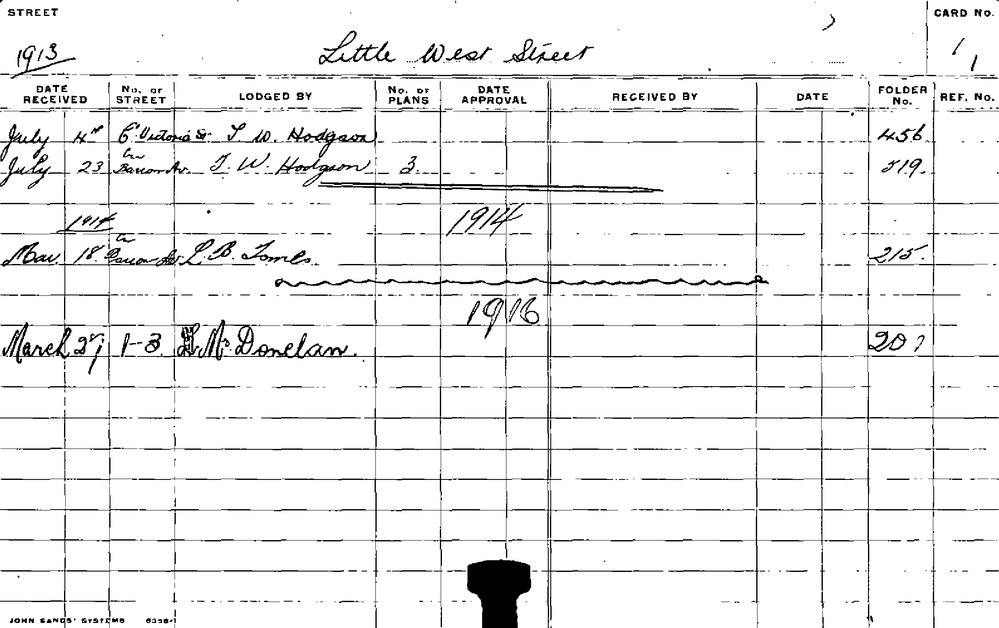 STREET
CARD No.
1913 Little West Street 1
DATE RECEIVED No. OF STREET LODGED BY No. OF PLANS DATE APPROVAL RECEIVED BY DATE FOLDER No. REF. No.
July 4th Victoria St T. W. Hodgson 456
July 23 Cnr Barcom Av. T. W. Hodgson 3. 519.
1914 1914
Mar. 18 Cnr L. B. 215.
1916
March 27 1-3 Donelan. 207
JOHN SANDS' SYSTEMS